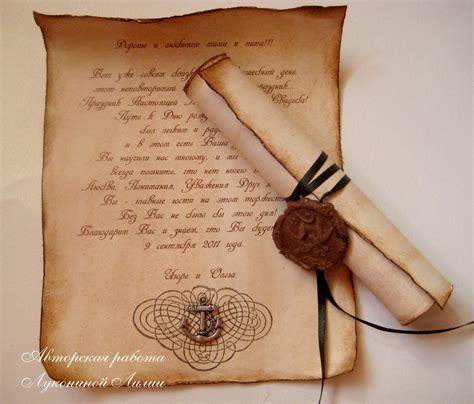 Дорогие и любимые мама и папа!!!
Вот уже совсем
день,
этот неповторимый
Праздник Настоящей
Свадьба!
Путь к Дню
был легким и
и в этом есть Ваша
Вы научили нас многому, и мы
всегда помнить, что нет ничего
Любви, Понимания, Уважения Друг к
Вы - главные гости на этом торжестве
Без Вас не было бы этого дня!
Благодарим Вас и знаем, что Вы будете
9 сентября 2011 года.
Игорь и Ольга
Авторская работа
Лукониной Лилии